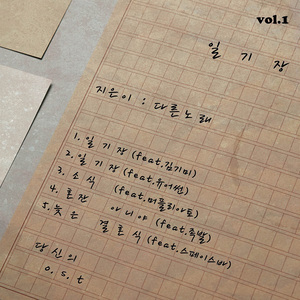 vol.1
일기장
지은이 : 다른노래
1. 일기장 (feat.김기미)
2. 일기장 (feat.유어썬)
3. 소식 (feat.머플리아토)
4. 혼잔 아니야 (feat.족발)
5. 늦은 결혼식 (feat.스페이스바)
당신의
o.s.t